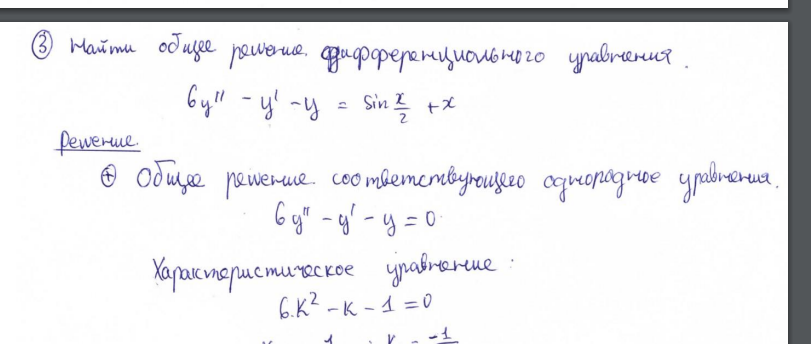 ③ Найти общее решение дифференциального уравнения.
6y'' - y' - y = sin x/2 + x
Решение.
⊕ Общее решение соответствующего однородное уравнения.
6y'' - y' - y = 0
Характеристическое уравнение:
6.K² - K - 1 = 0